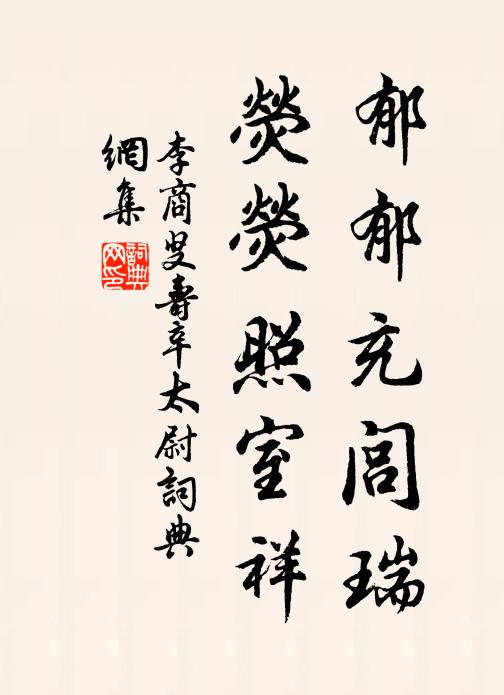 郁郁充閭瑞
熒熒照室祥
李商叟壽辛太尉詞典
網集
詞典
网印